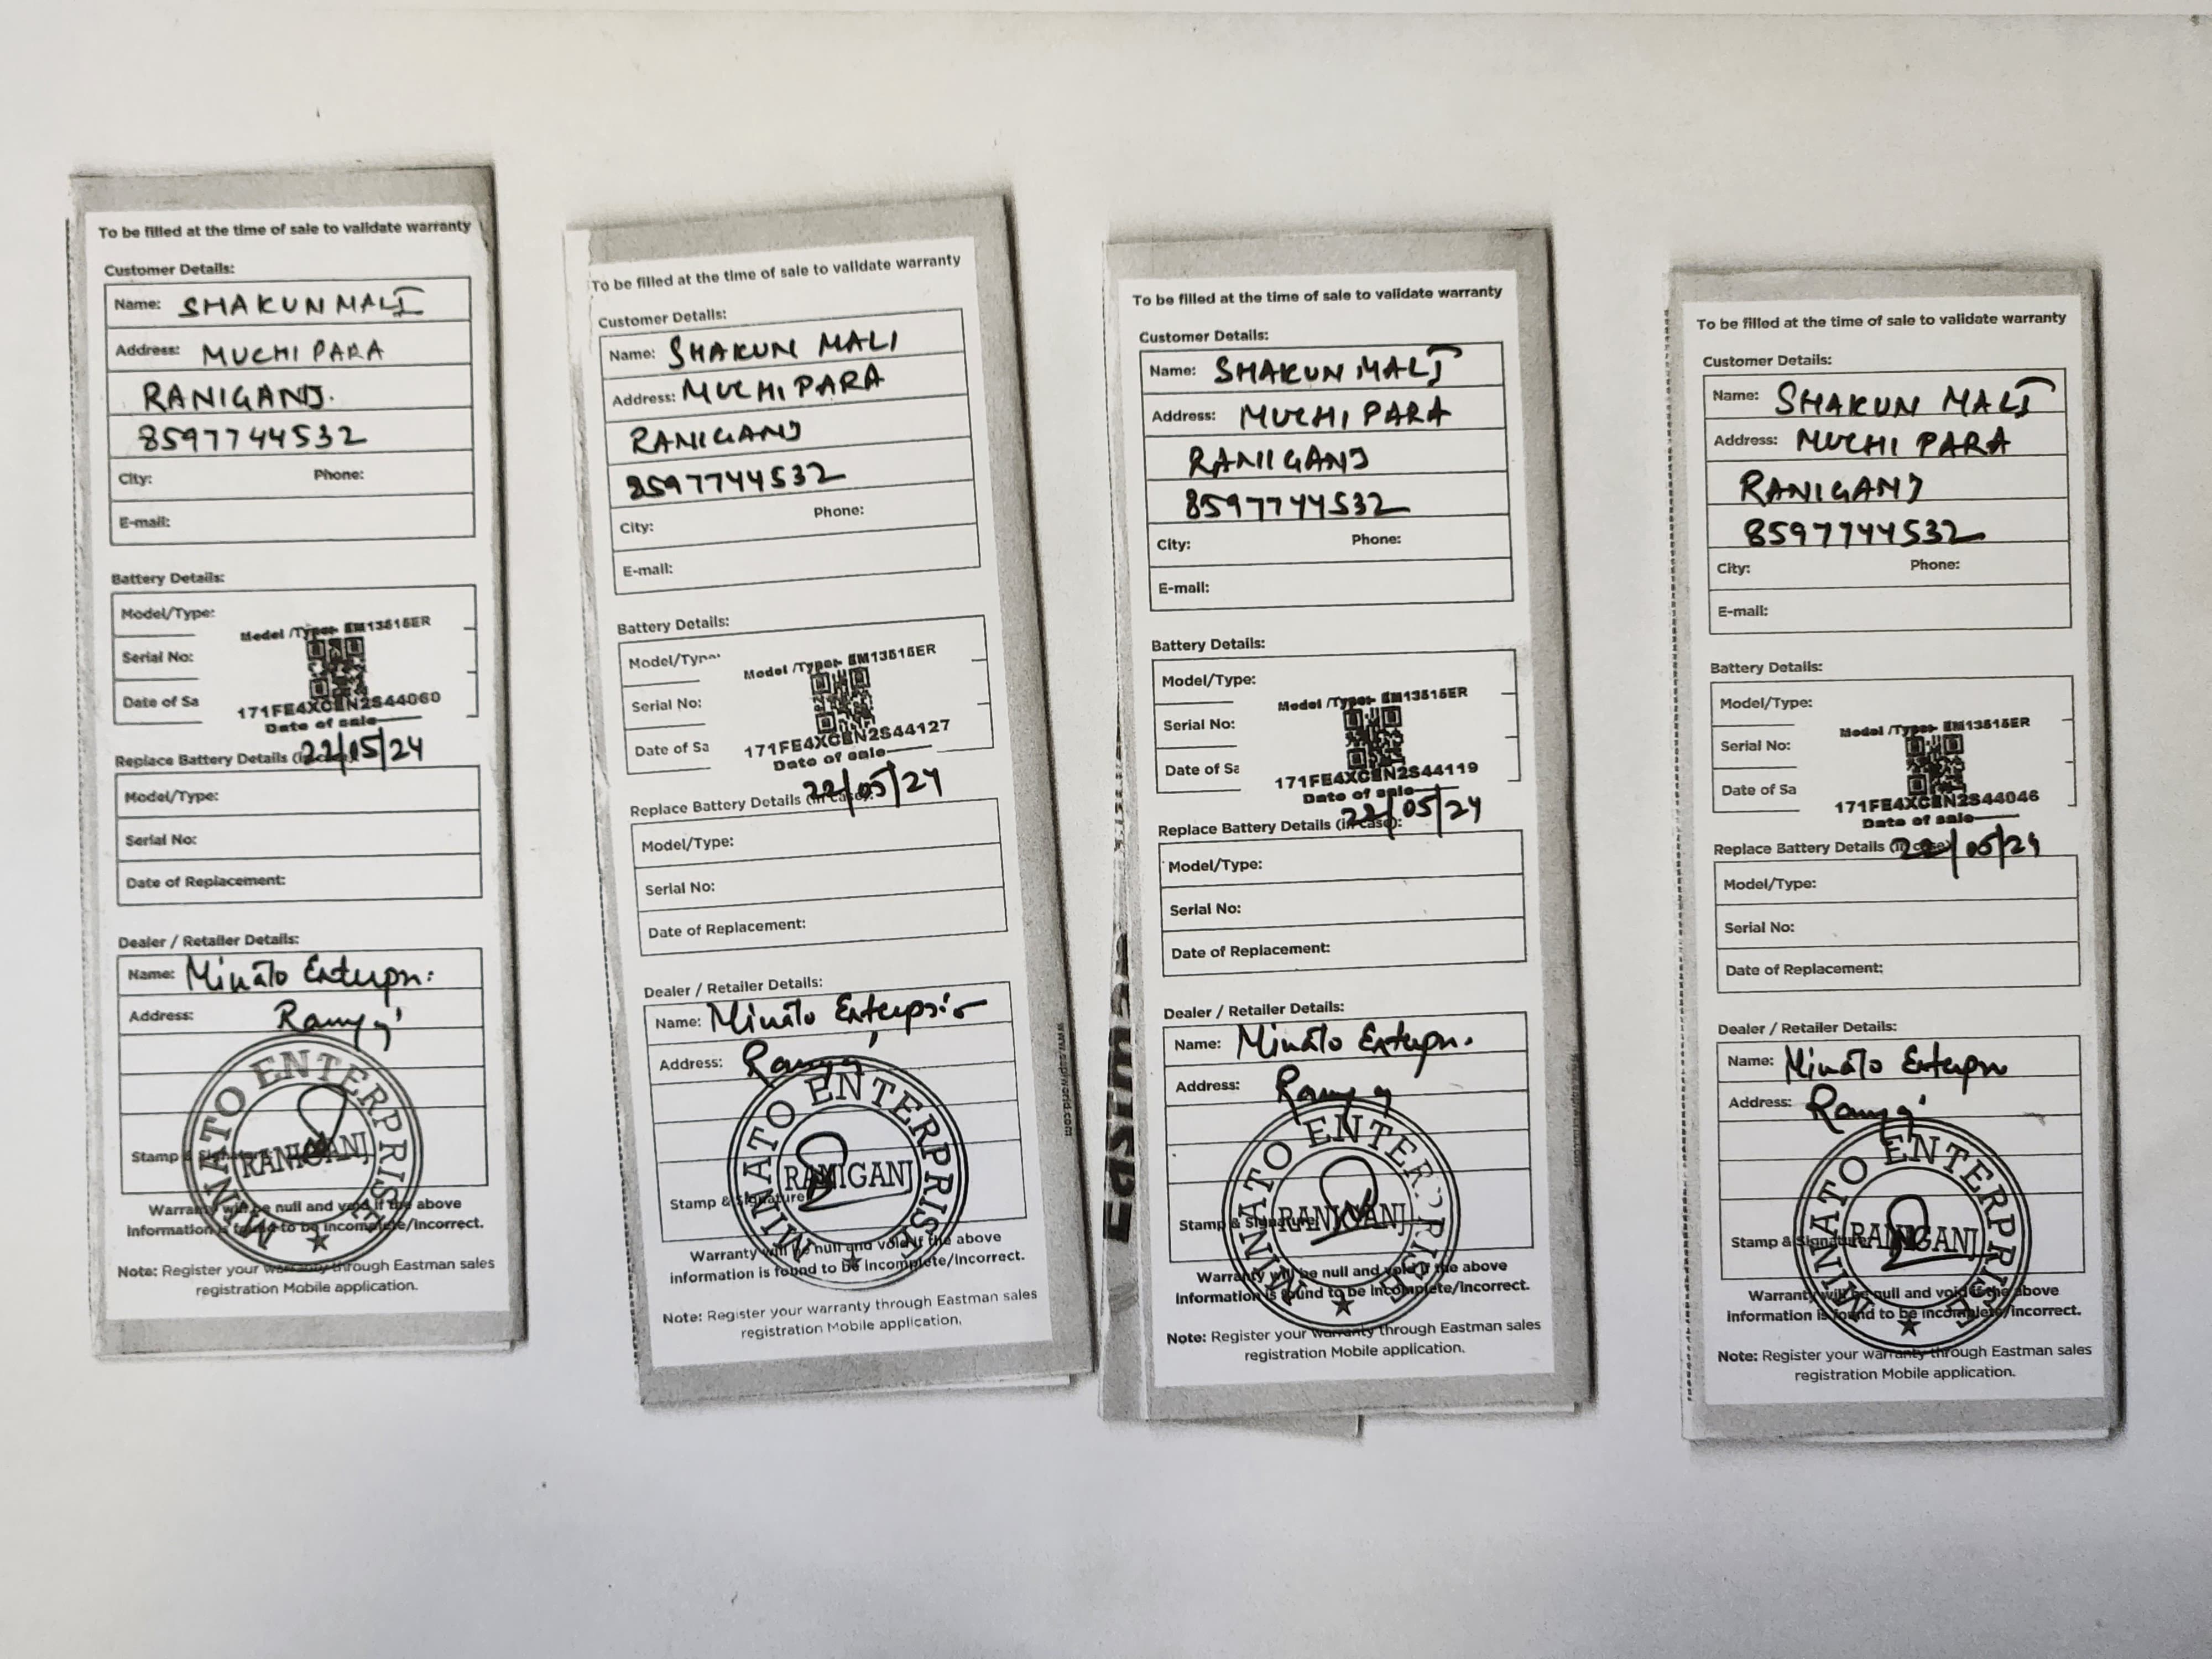 To be filled at the time of sale to validate warranty
Customer Details:
Name: SHAKUN MALI
Address: MUCHI PARA
RANIGANJ.
8597744532
City: Phone:
E-mail:
Battery Details:
Model/Type:
Model /Type:- EM13515ER
Serial No:
Date of Sa
171FE4XCEN2S44060
Date of sale
22/05/24
Replace Battery Details
Model/Type:
Serial No:
Date of Replacement:
Dealer / Retailer Details:
Name: Minato
Address:
MINATO ENTERPRISE
RANIGANJ
Stamp & Signature
Warranty will be null and void if the above
information is found to be incomplete/incorrect.
Note: Register your warranty through Eastman sales
registration Mobile application.
To be filled at the time of sale to validate warranty
Customer Details:
Name: SHAKUN MALI
Address: MUCHI PARA
RANIGANJ
8597744532
City: Phone:
E-mail:
Battery Details:
Model/Type:
Model /Type:- EM13515ER
Serial No:
Date of Sa
171FE4XCEN2S44127
Date of sale
22/05/24
Replace Battery Details (in case):
Model/Type:
Serial No:
Date of Replacement:
Dealer / Retailer Details:
Name: Minato
Address:
MINATO ENTERPRISE
RANIGANJ
Stamp & Signature
Warranty will be null and void if the above
information is found to be incomplete/incorrect.
Note: Register your warranty through Eastman sales
registration Mobile application.
Eastman
To be filled at the time of sale to validate warranty
Customer Details:
Name: SHAKUN MALI
Address: MUCHI PARA
RANIGANJ
8597744532
City: Phone:
E-mail:
Battery Details:
Model/Type:
Model /Type:- EM13515ER
Serial No:
Date of Sa
171FE4XCEN2S44119
Date of sale
22/05/24
Replace Battery Details (in case):
Model/Type:
Serial No:
Date of Replacement:
Dealer / Retailer Details:
Name: Minato
Address:
MINATO ENTERPRISE
RANIGANJ
Stamp & Signature
Warranty will be null and void if the above
information is found to be incomplete/incorrect.
Note: Register your warranty through Eastman sales
registration Mobile application.
To be filled at the time of sale to validate warranty
Customer Details:
Name: SHAKUN MALI
Address: MUCHI PARA
RANIGANJ
8597744532
City: Phone:
E-mail:
Battery Details:
Model/Type:
Model /Type:- EM13515ER
Serial No:
Date of Sa
171FE4XCEN2S44046
Date of sale
22/05/24
Replace Battery Details (in case)
Model/Type:
Serial No:
Date of Replacement:
Dealer / Retailer Details:
Name: Minato
Address:
MINATO ENTERPRISE
RANIGANJ
Stamp & Signature
Warranty will be null and void if the above
information is found to be incomplete/incorrect.
Note: Register your warranty through Eastman sales
registration Mobile application.